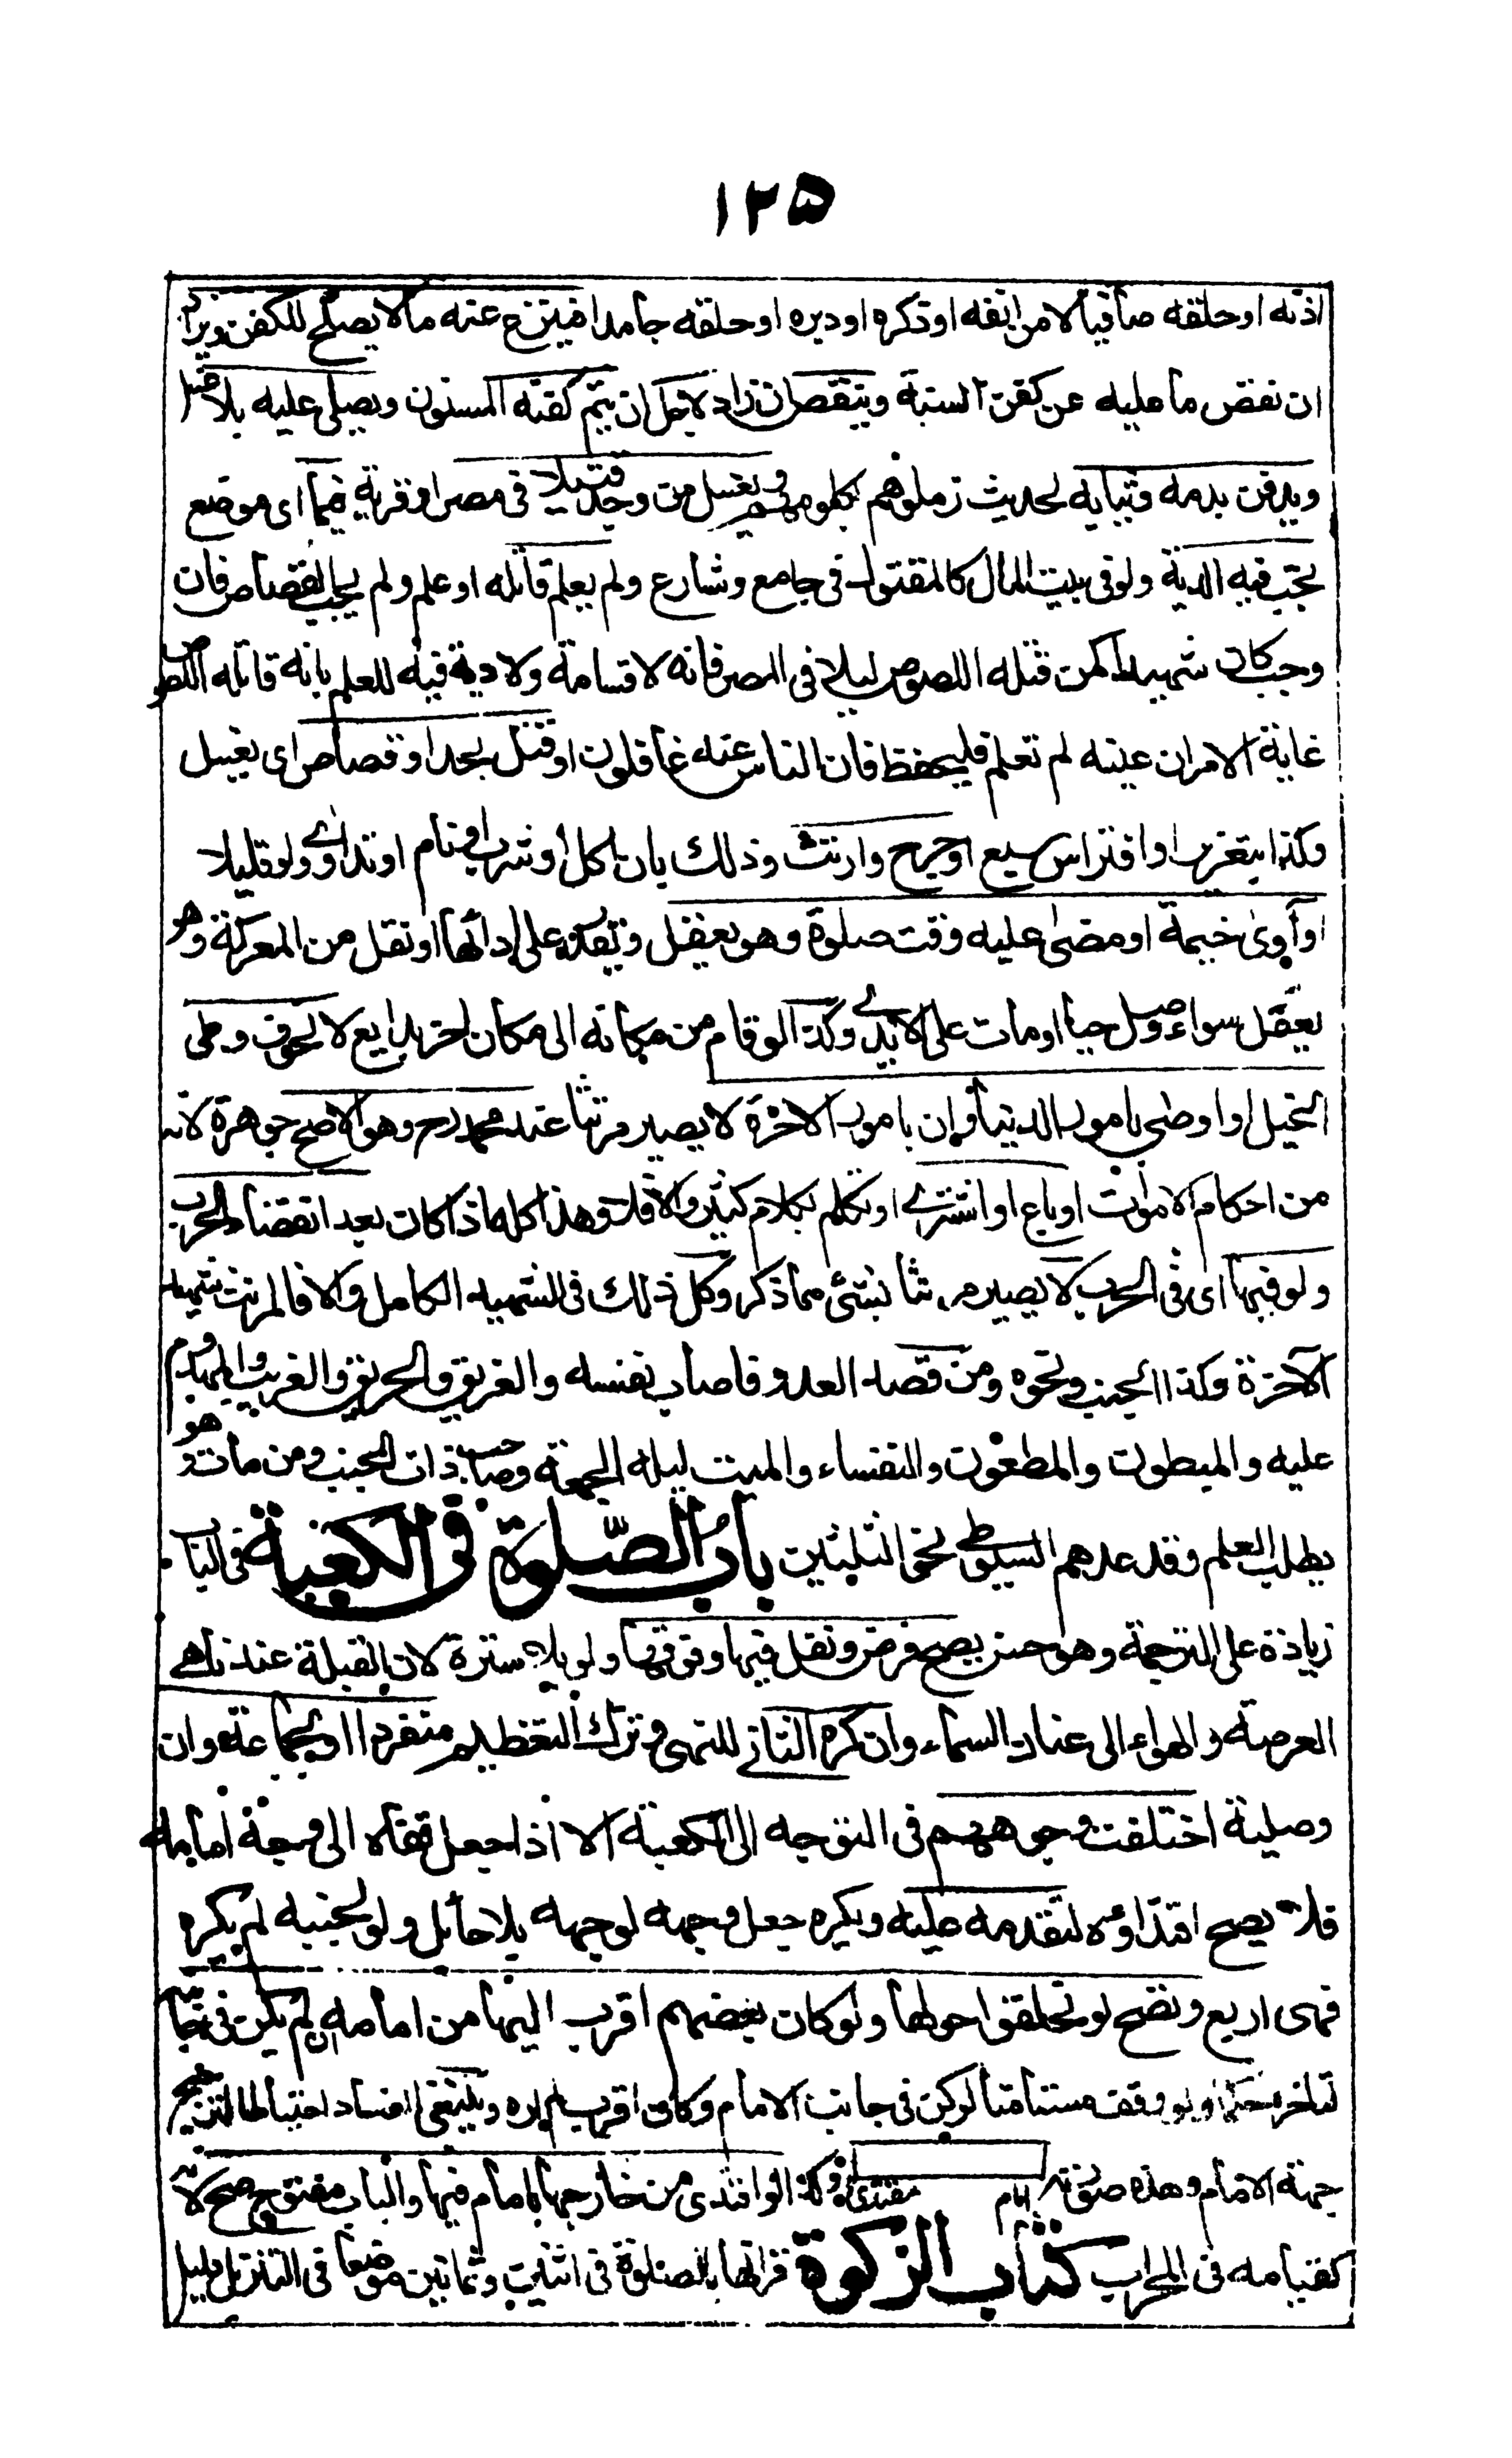 ١٢٥
اذنه او حلقه صافيا لا من انفه او ذكره او دبره او حلقه جامدا فينزع عنه ما لا يصلح للكفن ويزاد
ان نقص ما عليه عن كفن السنة وينقص ان زاد لاجل ان يتم كفنه المسنون ويصلى عليه بلا غسل
ويدفن بدمه وثيابه لحديث زملوهم بكلومهم ويغسل من وجد قتيلا فى مصر او قرية فيما اى موضع
تجب فيه الدية ولو فى بيت المال كالمقتول فى جامع وشارع ولم يعلم قاتله او علم ولم يجب القصاص فان
وجب كان شهيدا كمن قتله اللصوص ليلا فى المصر فانه لا قسامة ولا دية فيه للعلم بانه قاتله اللصوص
غاية الامر ان عينه لم تعلم فليحفظ فان الناس عنه غافلون او قتل بحد او قصاص اى يغسل
وكذا بتعزير او افتراس سبع او جرح وارتث وذلك بان اكل او شرب او نام او تداوى ولو قليلا
او آوى خيمة او مضى عليه وقت صلوة وهو يعقل ويقدر على ادائها او نقل من المعركة وهو
يعقل سواء وصل حيا او مات على الايدى وكذا لو قام من مكانه الى مكان اخر بدايع لا لخوف وطى
الخيل او اوصى بامور الدنيا وان بامور الاخرة لا يصير مرتثا عند محمد رح وهو الاصح جوهرة لانه
من احكام الاموات او باع او اشترى او تكلم بكلام كثير والا فلا وهذا كله اذا كان بعد انقضاء الحرب
ولو فيها اى فى الحرب لا يصير مرتثا بشئ مما ذكر وكل ذلك فى الشهيد الكامل والا فالمرتث شهيد
الآخرة وكذا الجنب ونحوه ومن قصد العدو فاصاب نفسه والغريق والحريق والغريب والمهدوم
عليه والمبطون والمطعون والنفساء والميت ليلة الجمعة وصاحب ذات الجنب ومن مات وهو
يطلب العلم وقد عدهم السيوطى نحو الثلثين باب الصلوة فى الكعبة فى الباب
زيادة على الترجمة وهو حسن يصح فرض ونفل فيها وفوقها ولو بلا سترة لان القبلة عندنا هى
العرصة والهواء الى عنان السماء وان كره الثانى للنهى وترك التعظيم منفردا او بجماعة وان
وصلية اختلفت وجوههم فى التوجه الى الكعبة الا اذا جعل قفاه الى وجه امامه
فلا يصح اقتداؤه لتقدمه عليه ويكره جعل وجهه لوجهه بلا حائل ولو لجنبه لم يكره
فهى اربع وتصح لو تحلقوا حولها ولو كان بعضهم اقرب اليها من امامه ان لم يكن فى جانبه
لتأخره حكما ولو وقف مسامتا لركن فى جانب الامام وكان اقرب لم اره وينبغى الفساد احتياطا لترجيح
جهة الامام وهذه صورته امام مقتدى وكذا لو اقتدى من خارجها بامام فيها والباب مفتوح صح لانه
كقيامه فى المحراب كتاب الزكوة قرانها بالصلوة فى اثنين وثمانين موضعا فى التنزيل دليل